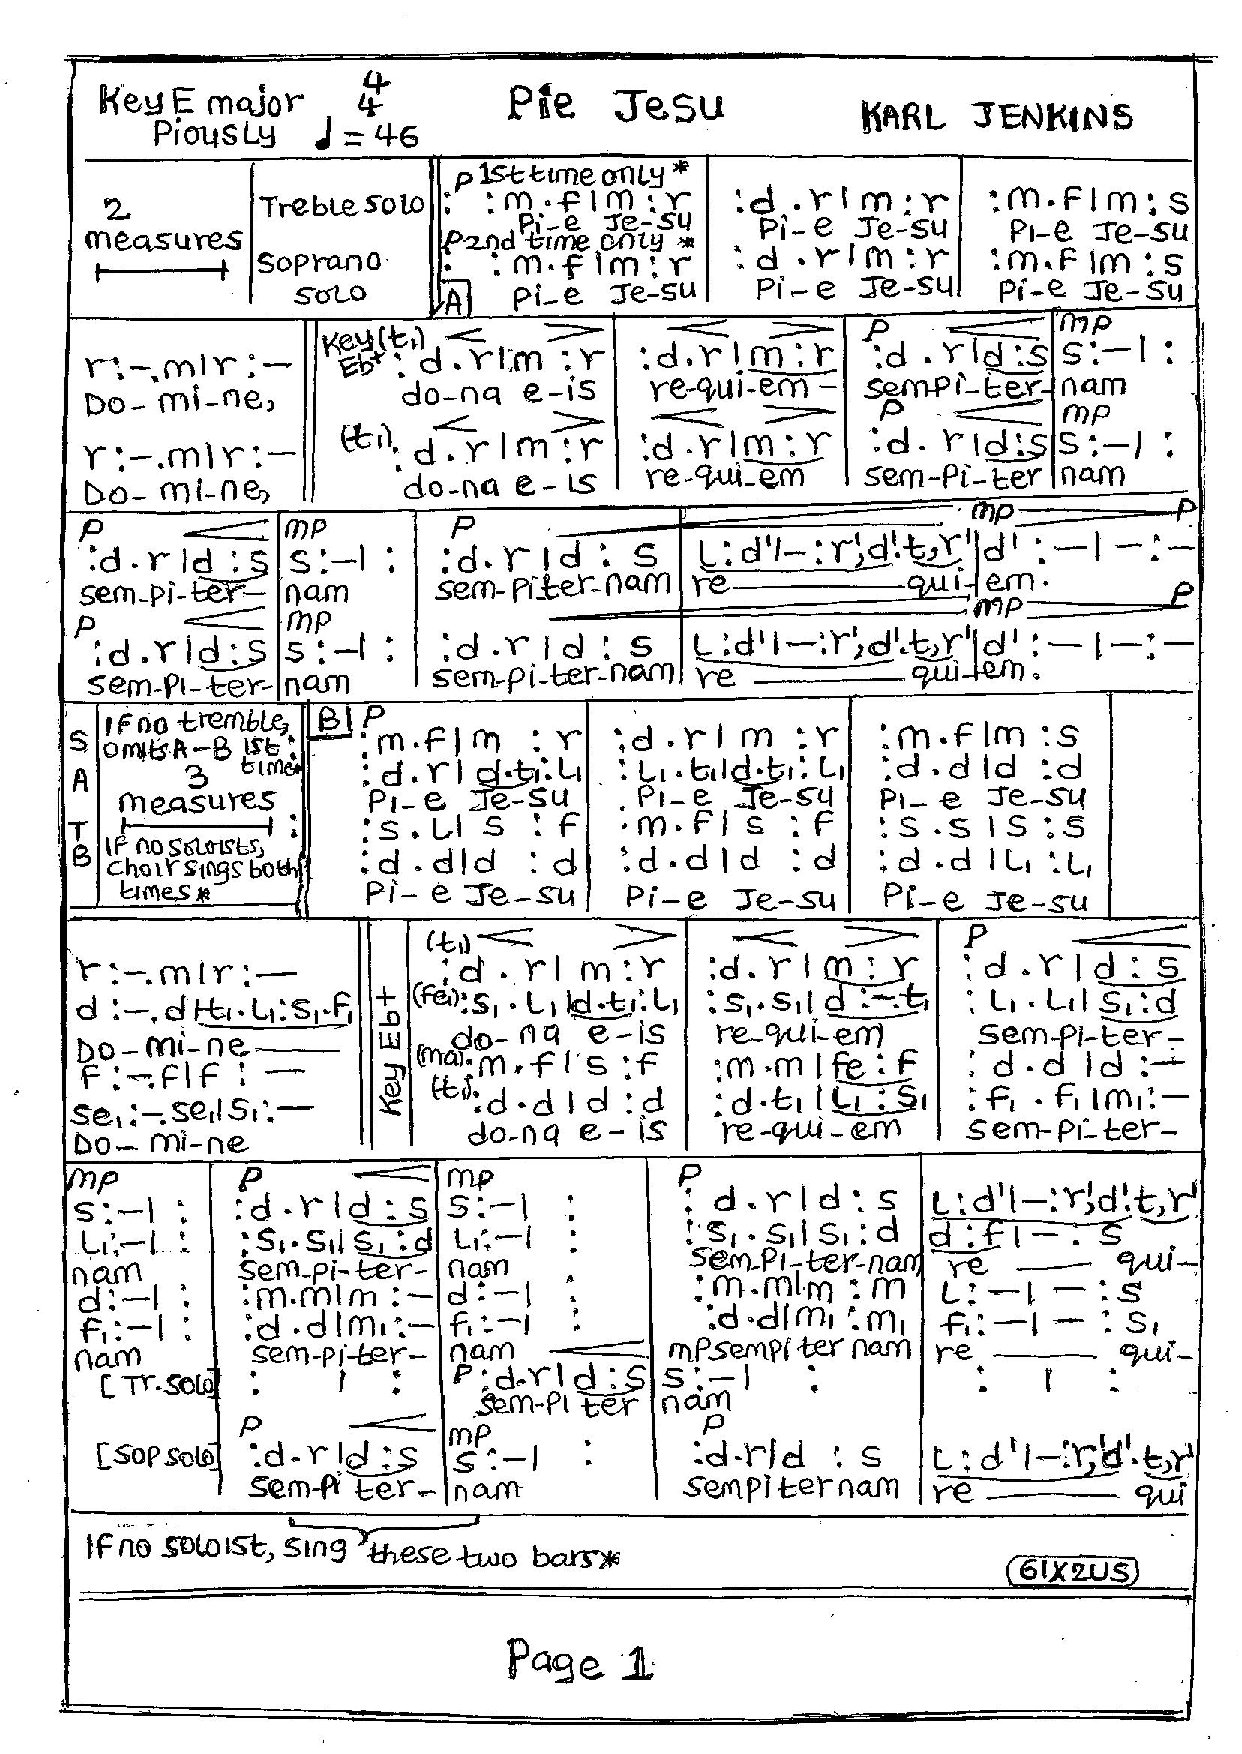 Key E major 4/4 Pie Jesu KARL JENKINS
Piously ♩ = 46
P 1st time only *
2 measures Treble solo : :m.f|m:r :d.r|m:r :m.f|m:s
Pi-e Je-su Pi-e Je-su Pi-e Je-su
P 2nd time only *
Soprano solo : :m.f|m:r :d.r|m:r :m.f|m:s
A Pi-e Je-su Pi-e Je-su Pi-e Je-su
Key (t₁) P mp
r:-.m|r:- Eb+ :d.r|m:r :d.r|m:r :d.r|d:s s:-| :
Do-mi-ne, do-na e-is re-qui-em- sempi-ter- nam
P mp
r:-.m|r:- (t₁) :d.r|m:r :d.r|m:r :d.r|d:s s:-| :
Do-mi-ne, do-na e-is re-qui-em sem-pi-ter nam
P mp P mp P
:d.r|d:s s:-| : :d.r|d:s l:d'|-:r',d'.t,r' d':-|-:-
sem-pi-ter- nam sem-piter-nam re qui-em.
P mp mp P
:d.r|d:s s:-| : :d.r|d:s l:d'|-:r',d'.t,r' d':-|-:-
sem-pi-ter- nam sem-pi-ter-nam re qui-em.
S A T B
If no tremble,
omits A-B 1st :
time
3
measures
:
If no soloists,
choir sings both
times*
B P
:m.f|m:r :d.r|m:r :m.f|m:s
:d.r|d.t₁:l₁ :l₁.t₁|d.t₁:l₁ :d.d|d:d
Pi-e Je-su Pi-e Je-su Pi-e Je-su
:s.l|s:f .m.f|s:f :s.s|s:s
:d.d|d:d :d.d|d:d :d.d|l₁:l₁
Pi-e Je-su Pi-e Je-su Pi-e Je-su
Key Eb+
(t₁) P
r:-.m|r:- :d.r|m:r :d.r|m:r :d.r|d:s
d:-.d|t₁.l₁:s₁.f₁ (fe₁):s₁.l₁|d.t₁:l₁ :s₁.s₁|d:-.t₁ :l₁.l₁|s₁:d
Do-mi-ne do-na e-is re-qui-em sem-pi-ter-
f:-.f|f:- (ma).m.f|s:f :m.m|fe:f :d.d|d:-
se₁:-.se₁|s₁:- (t₁).d.d|d:d :d.t₁|l₁:s₁ :f₁.f₁|m₁:-
Do-mi-ne do-na e-is re-qui-em sem-pi-ter-
mp P mp P
s:-| : :d.r|d:s s:-| : :d.r|d:s l:d'|-:r',d'.t,r'
l₁:-| : :s₁.s₁|s₁:d l₁:-| : :s₁.s₁|s₁:d d:f|-:s
nam sem-pi-ter- nam sem-pi-ter-nam re qui-
d:-| : :m.m|m:- d:-| : :m.m|m:m l:-|-:s
f₁:-| : :d.d|m₁:- f₁:-| : :d.d|m₁:m₁ f₁:-|-:s₁
nam sem-pi-ter- nam mp sempi ter nam re qui-
[Tr.solo] : | : P :d.r|d:s s:-| : : | :
sem-pi ter nam
P mp P
[SOP solo] :d.r|d:s s:-| : :d.r|d:s l:d'|-:r',d'.t,r'
sem-pi ter- nam sempiternam re qui
If no soloist, sing these two bars*
61X2US
Page 1